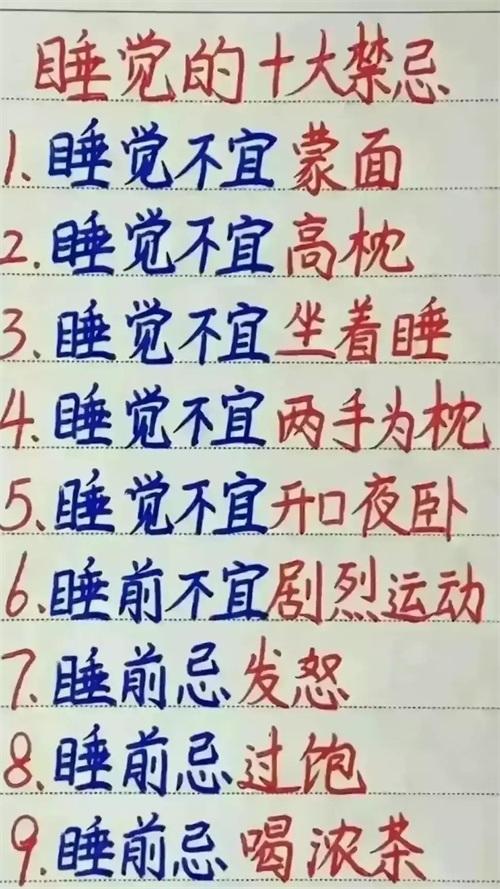 睡觉的十大禁忌
1.睡觉不宜蒙面
2.睡觉不宜高枕
3.睡觉不宜坐着睡
4.睡觉不宜两手为枕
5.睡觉不宜开口夜卧
6.睡前不宜剧烈运动
7.睡前忌发怒
8.睡前忌过饱
9.睡前忌喝浓茶